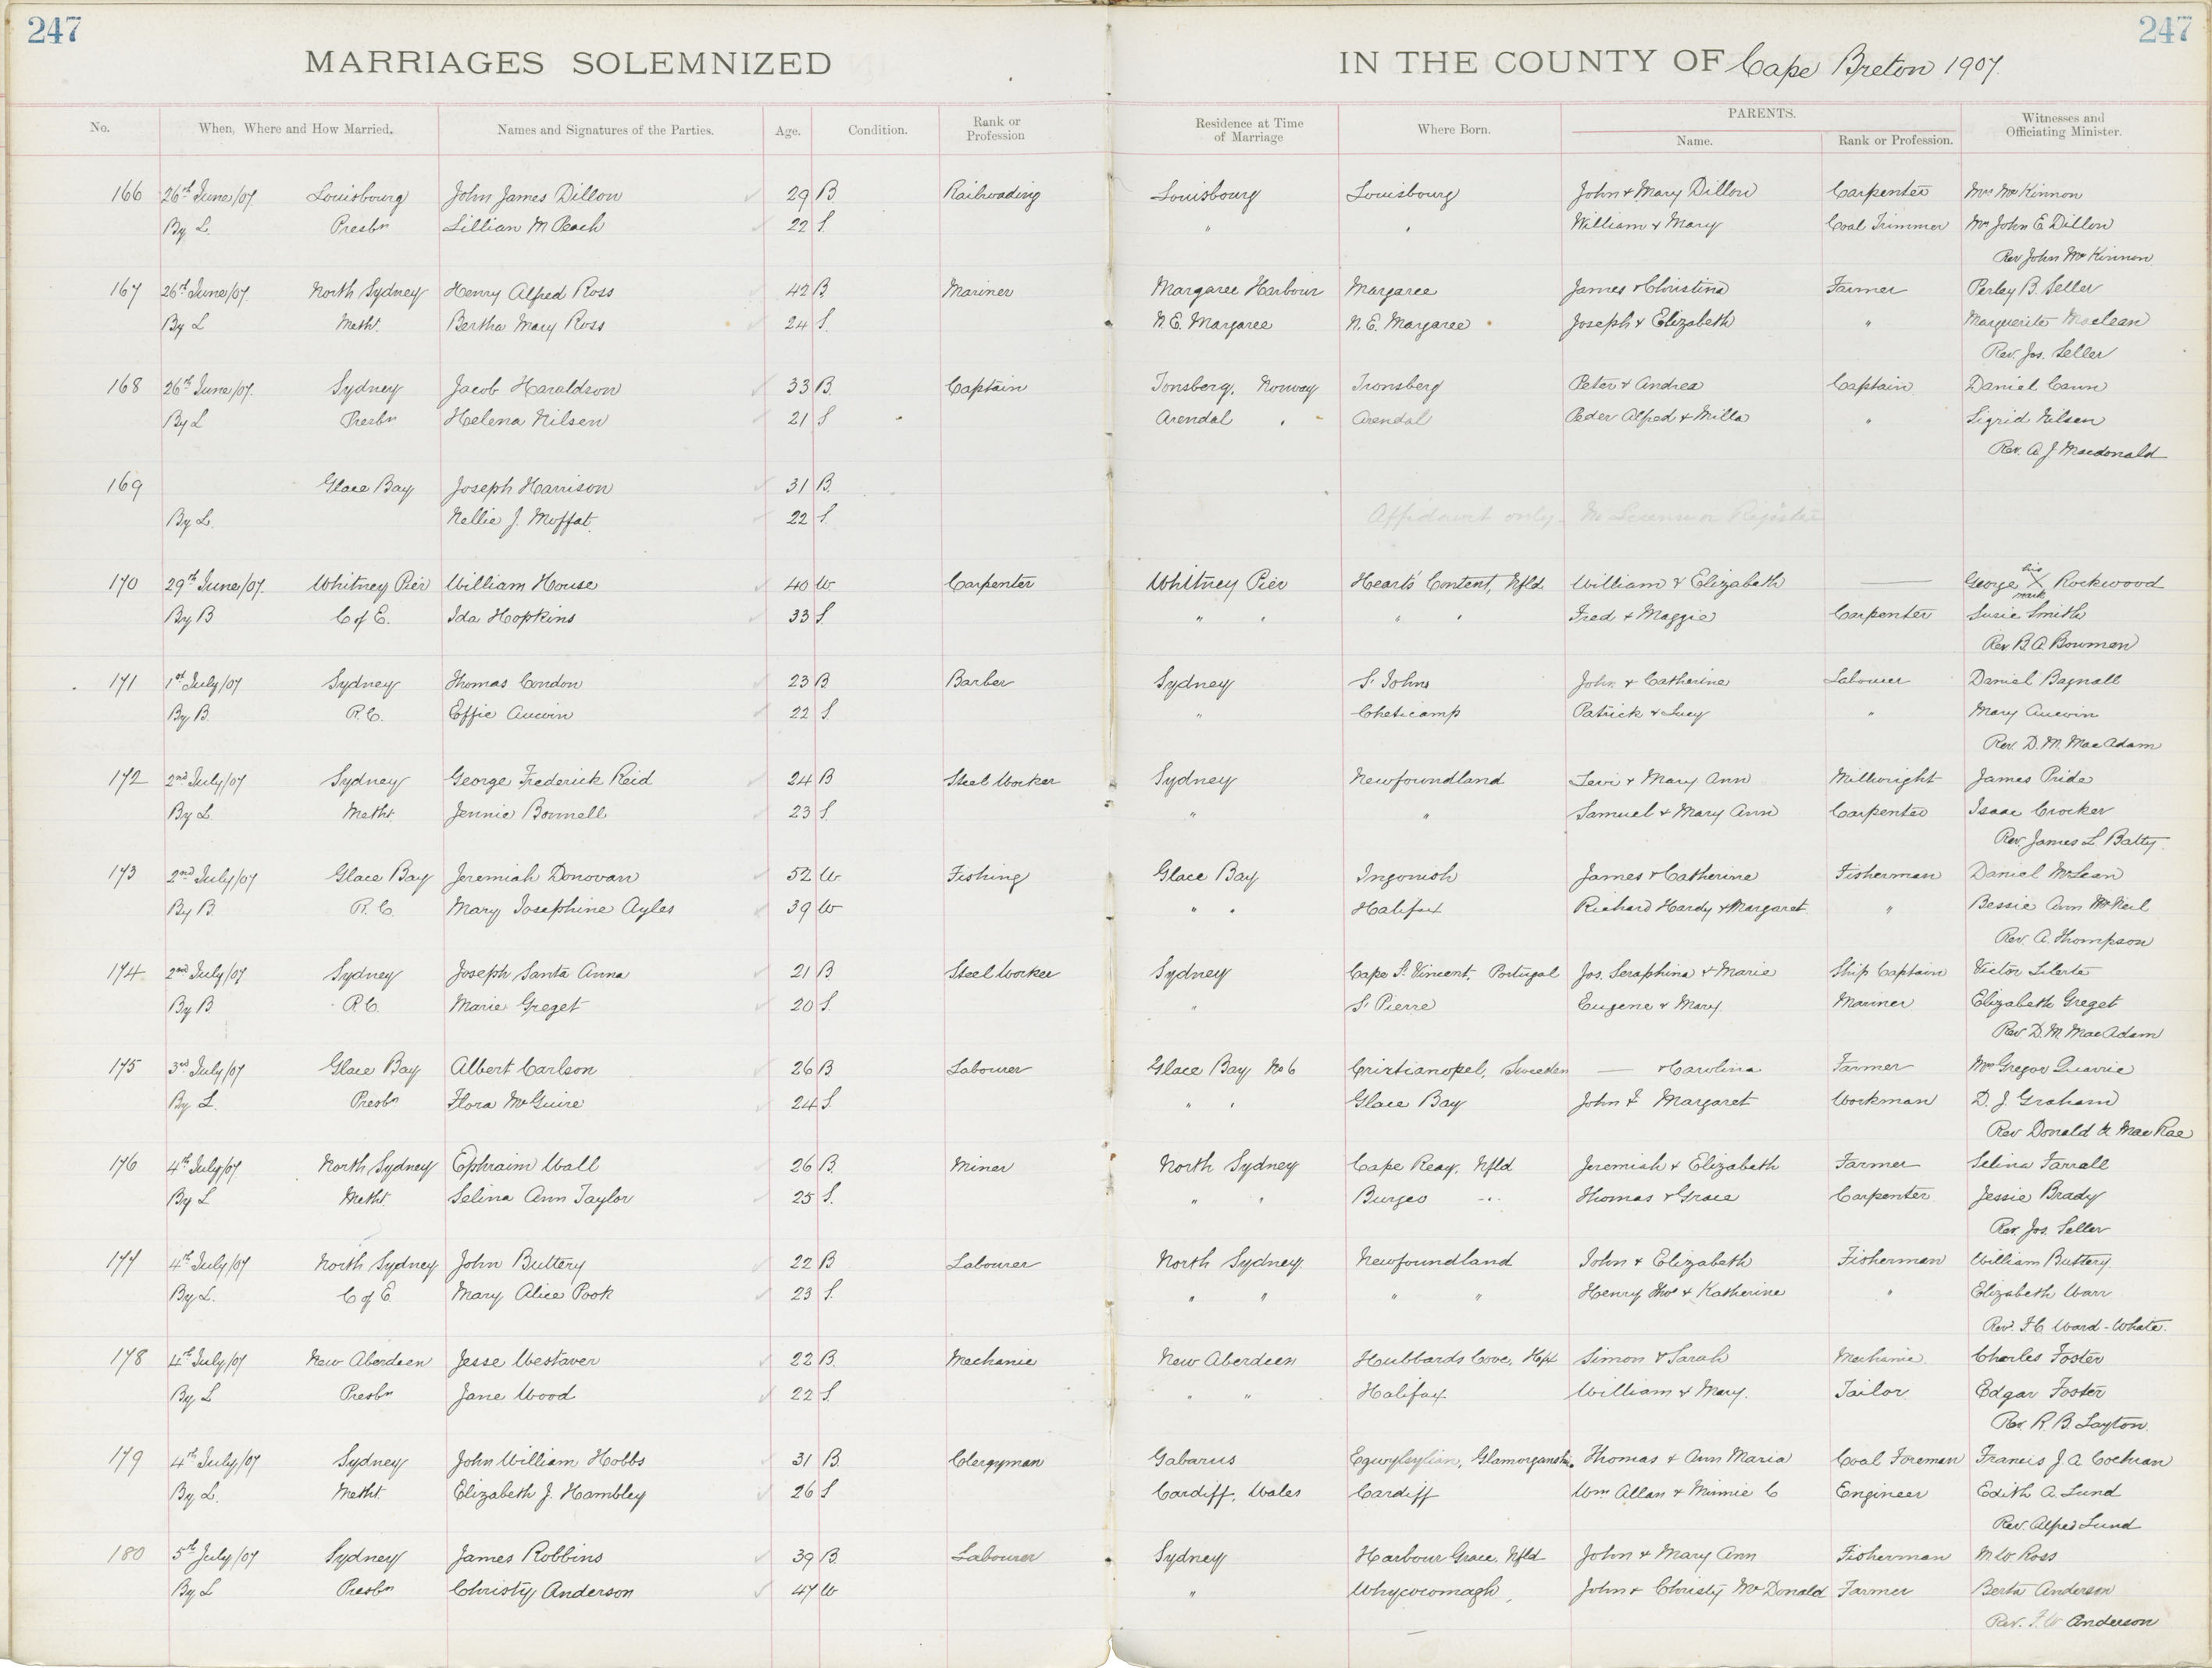 247 247
MARRIAGES SOLEMNIZED IN THE COUNTY OF Cape Breton 1907.
No. When, Where and How Married. Names and Signatures of the Parties. Age. Condition. Rank or Profession Residence at Time of Marriage Where Born. PARENTS. Name. Rank or Profession. Witnesses and Officiating Minister.
166 26th June/07 Louisbourg John James Dillon 29 B. Railroading Louisbourg Louisbourg John & Mary Dillon Carpenter Mrs McKinnon
By L. Presbn Lillian M Peach 22 S. " " William & Mary Coal Trimmer Mr John E Dillon
Rev John McKinnon
167 26th June/07. North Sydney Henry Alfred Ross 42 B Mariner Margaree Harbour Margaree James & Christina Farmer Perley B. Seller
By L Metht. Bertha Mary Ross 24 S. N.E. Margaree N.E. Margaree Joseph & Elizabeth " Marguerite Maclean
Rev. Jos. Seller
168 26th June/07. Sydney Jacob Haraldson 33 B. Captain Tonsberg, Norway Tronsberg Peter & Andrea Captain Daniel Cann
By L Presbn Helena Nilsen 21 S Arendal " Arendal Peder Alfred & Milla " Sigrid Nilsen
Rev. A J Macdonald
169 Glace Bay Joseph Harrison 31 B.
By L. Nellie J. Moffat. 22 S. Affidavit only. No License or Register
170 29th June/07. Whitney Pier William House 40 W. Carpenter Whitney Pier Heart's Content, Nfld. William & Elizabeth — George his X mark Rockwood
By B C of E. Ida Hopkins 33 S. " " " " Fred & Maggie Carpenter Susie Smith
Rev R A Bowman
171 1st July/07 Sydney Thomas Condon 23 B Barber Sydney St Johns John & Catherine Labourer Daniel Bagnall
By B. R.C. Effie Aucoin 22 S " Cheticamp Patrick & Lucy " Mary Aucoin
Rev. D. M. MacAdam
172 2nd July/07 Sydney George Frederick Reid 24 B Steel Worker Sydney Newfoundland Levi & Mary Ann Millwright James Pride
By L. Metht. Jennie Bonnell 23 S. " " Samuel & Mary Ann Carpenter Isaac Crocker
Rev. James L. Batty.
173 2nd July/07 Glace Bay Jeremiah Donovan 52 W Fishing Glace Bay Ingonish James & Catherine Fisherman Daniel McLean
By B. R.C. Mary Josephine Ayles 39 W " " Halifax Richard Hardy & Margaret " Bessie Ann McNeil
Rev. A. Thompson
174 2nd July/07 Sydney Joseph Santa Anna 21 B Steel Worker Sydney Cape St Vincent, Portugal Jos. Seraphina & Marie Ship Captain Victor Liberte
By B R.C. Marie Greget 20 S. " St Pierre Eugene & Mary Mariner Elizabeth Greget
Rev. D. M MacAdam
175 3rd July/07 Glace Bay Albert Carlson 26 B Labourer Glace Bay No 6 Cristianopel, Sweeden — & Carolina Farmer McGregor Quarrie
By L. Presbn Flora McGuire 24 S. " " Glace Bay John F Margaret Workman D. J Graham
Rev Donald MacRae
176 4th July/07 North Sydney Ephraim Wall 26 B. Miner North Sydney Cape Reay, Nfld Jeremiah & Elizabeth Farmer Selina Farrall
By L Metht. Selina Ann Taylor 25 S. " " Burgeo " Thomas & Grace Carpenter Jessie Brady
Rev. Jos. Seller
177 4th July/07 North Sydney John Buttery 22 B Labourer North Sydney Newfoundland John & Elizabeth Fisherman William Buttery
By L. C of E. Mary Alice Pook 23 S. " " " " Henry Thos & Katherine " Elizabeth Warr
Rev. F C Ward-Whate.
178 4th July/07 New Aberdeen Jesse Westaver 22 B. Mechanic New Aberdeen Hubbards Cove, Hfx Simon & Sarah Mechanic. Charles Foster
By L Presbn Jane Wood 22 S. " " Halifax William & Mary. Tailor Edgar Foster
Rev. R. B. Layton.
179 4th July/07 Sydney John William Hobbs 31 B. Clergyman Gabarus Glamorgansh. Thomas & Ann Maria Coal Foreman Francis J A Cochran
By L. Metht. Elizabeth J. Hambley 26 S Cardiff, Wales Cardiff Wm Allan & Minnie C Engineer Edith A. Lund
Rev. Alfred Lund
180 5th July/07 Sydney James Robbins 39 B. Labourer Sydney Harbour Grace, Nfld John & Mary Ann Fisherman M W Ross
By L Presbn Christy Anderson 47 W " Whycocomagh John & Christy McDonald Farmer Berta Anderson
Rev. Anderson